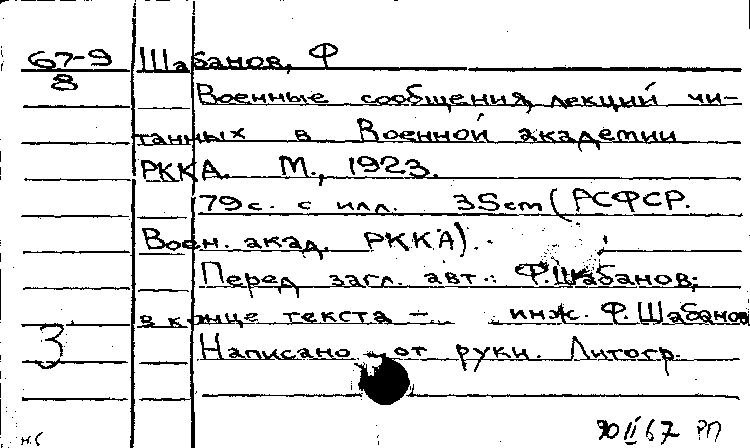 67-9 Шабанов, Ф
8
Военные сообщения, лекций чи-
танных в Военной академии
РККА. М., 1923.
79 с. с илл. 35cm (РСФСР.
Воен. акад. РККА).
Перед загл. авт.: Ф.Шабанов;
в конце текста - инж. Ф. Шабанов
Написано от руки. Литогр.
3
н.б
РП